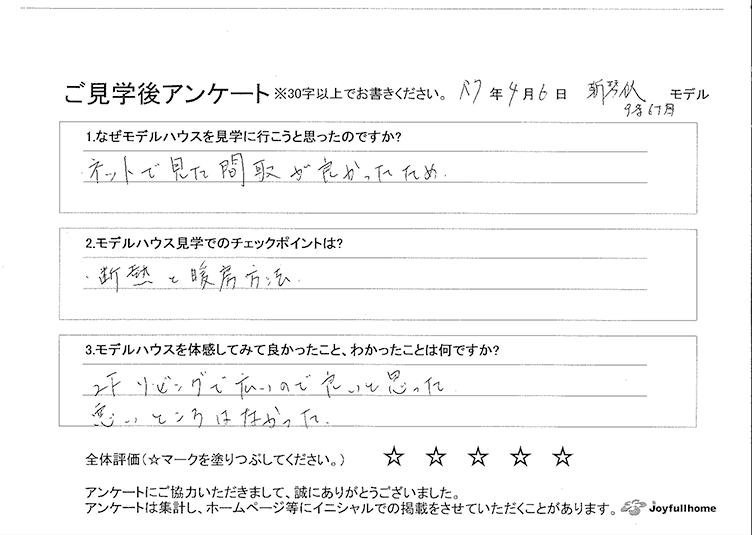 ご見学後アンケート ※30字以上でお書きください。 R7 年 4 月 6 日 新琴似 モデル
9条6丁目
1.なぜモデルハウスを見学に行こうと思ったのですか?
ネットで見た間取が良かったため.
2.モデルハウス見学でのチェックポイントは?
・断熱と暖房方法.
3.モデルハウスを体感してみて良かったこと、わかったことは何ですか?
2Fリビングで広いので良いと思った
悪いところはなかった.
全体評価(☆マークを塗りつぶしてください。) ☆ ☆ ☆ ☆ ☆
アンケートにご協力いただきまして、誠にありがとうございました。
アンケートは集計し、ホームページ等にイニシャルでの掲載をさせていただくことがあります。 Joyfullhome